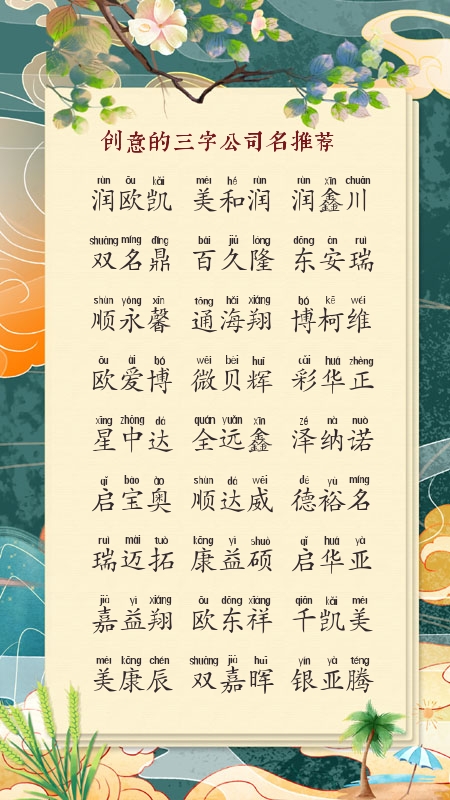 创意的三字公司名推荐
rùn ōu kǎi měi hé rùn rùn xīn chuān
润欧凯 美和润 润鑫川
shuāng míng dǐng bǎi jiǔ lóng dōng ān ruì
双名鼎 百久隆 东安瑞
shùn yǒng xīn tōng hǎi xiáng bó kē wéi
顺永馨 通海翔 博柯维
ōu ài bó wēi bèi huī cǎi huá zhèng
欧爱博 微贝辉 彩华正
xīng zhōng dá quán yuǎn xīn zé nà nuò
星中达 全远鑫 泽纳诺
qǐ bǎo ào shùn dá wēi dé yù míng
启宝奥 顺达威 德裕名
ruì mài tuò kāng yì shuò qǐ huá yà
瑞迈拓 康益硕 启华亚
jiā yì xiáng ōu dōng xiáng qiān kǎi měi
嘉益翔 欧东祥 千凯美
měi kāng chén shuāng jiā huī yín yà téng
美康辰 双嘉晖 银亚腾